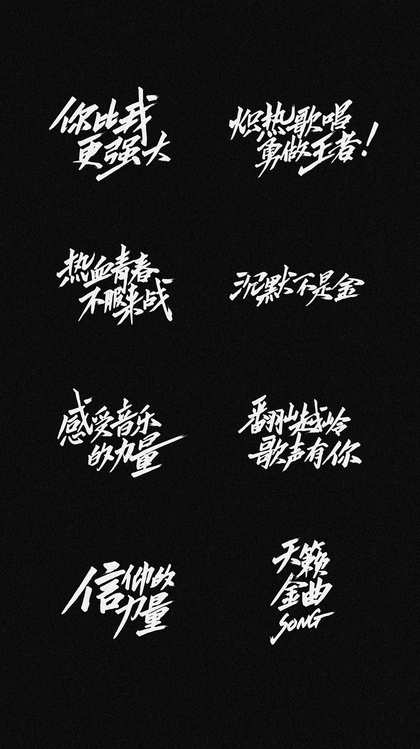 你比我
更强大
炽热歌唱
勇做王者！
热血青春
不服来战
沉默不是金
感受音乐
的力量
翻山越岭
歌声有你
信仰的
力量
天籁
金曲
SONG